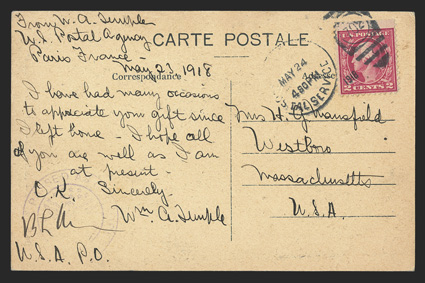 From W. A. Temple
U.S. Postal Agency
Paris France -
May 23, 1918
CARTE POSTALE
Correspondance
I have had many occasions
to appreciate your gift since
I left home - I hope all
of you are well as I am
at present -
Sincerely -
Wm A. Temple
O.K.
U.S.A. P.O.
MAY 24
4:30 PM
SERVICE
U.S. POSTAGE
2 CENTS 2
Mrs H. G. Mansfield
Westboro
Massachusetts
U.S.A.